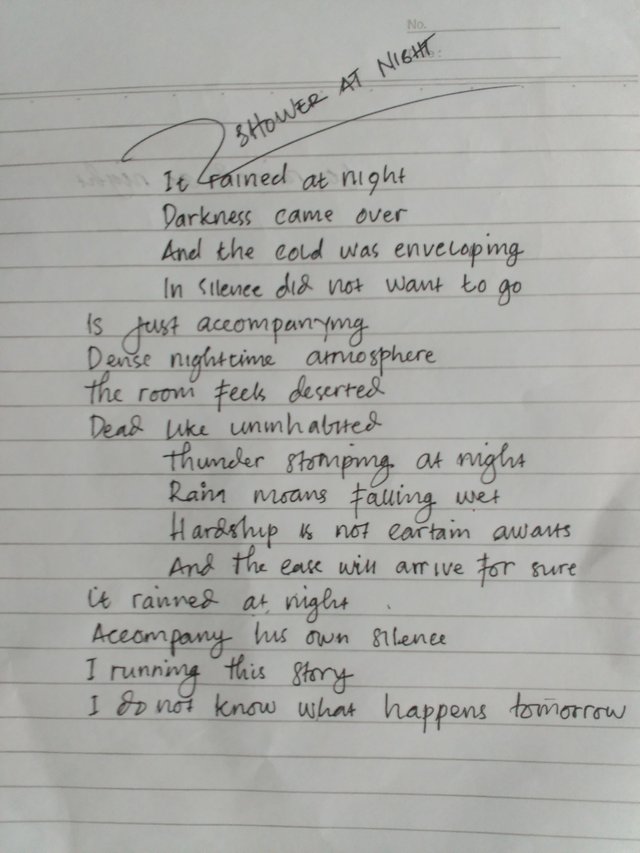 No.
SHOWER AT NIGHT
It rained at night
Darkness came over
And the cold was enveloping
In silence did not want to go
Is just accompanying
Dense nighttime atmosphere
the room feels deserted
Dead like uninhabited
thunder stomping at night
Rain moans falling wet
Hardship is not cartain awaits
And the ease will arrive for sure
it rainned at night
Accompany his own silence
I running this story
I do not know what happens tomorrow